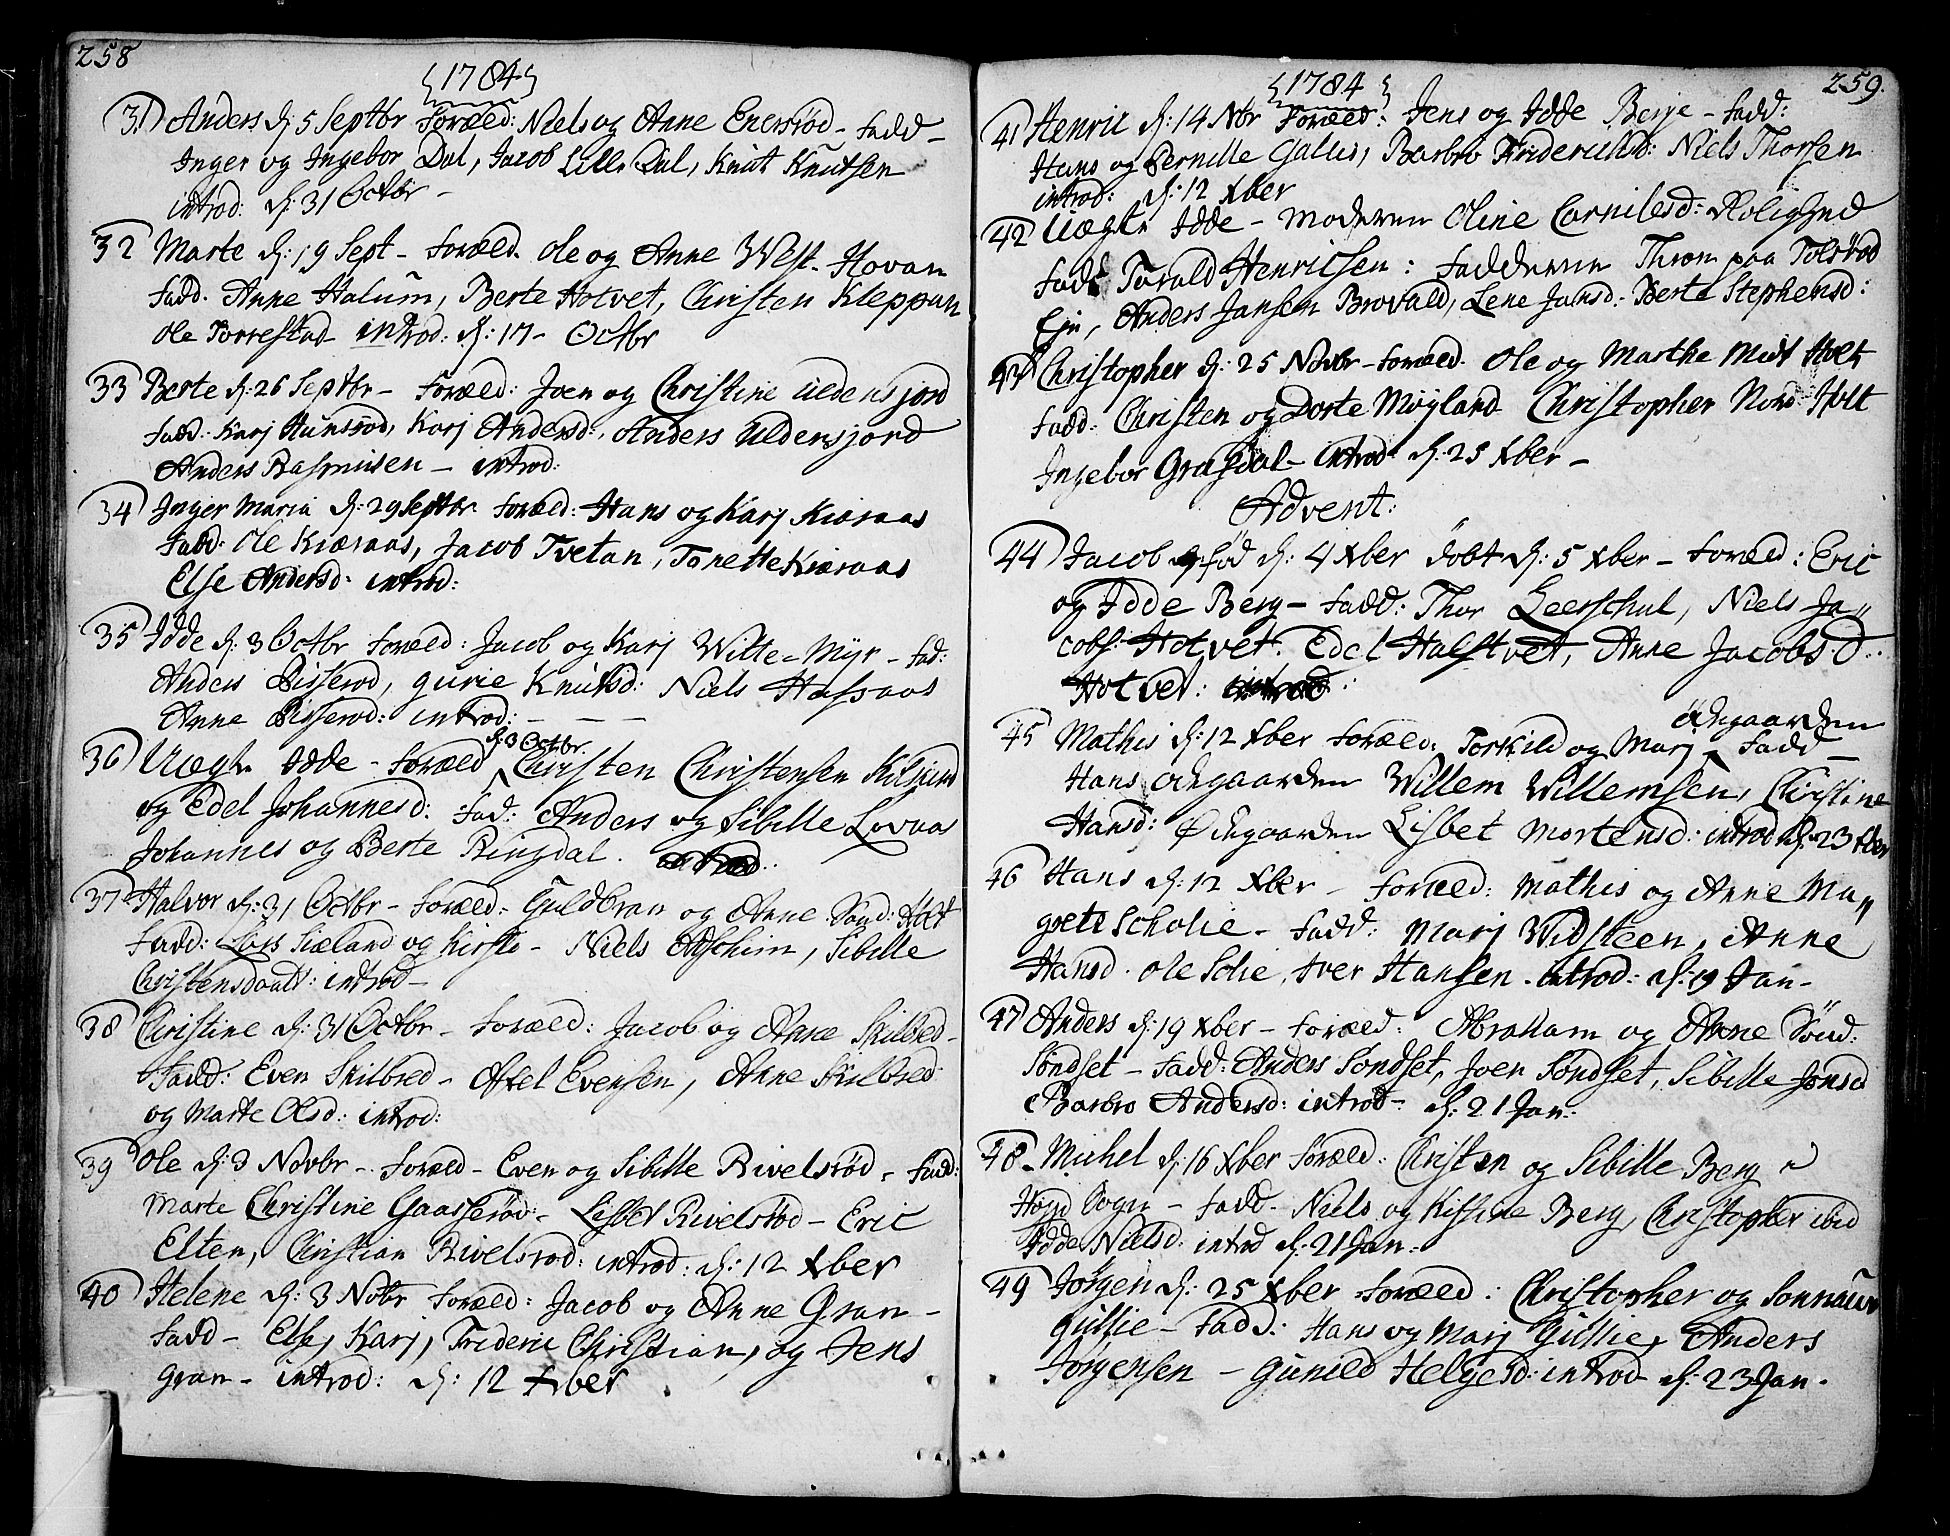 258
1784
31 Anders d: 5 Septbr Foræld: Niels og Anne Enersrød - Fadd -
Inger og Ingebor Dal, Jacob Lille Dal, Knut Knutsen
introd: d: 31 Octbr -
32 Marte d: 19 Sept - Foræld. Ole og Anne West-Hovan
Fadd. Anne Halum, Berte Hotvet, Christen Kleppan
Ole Torrestad introd: d: 17 - Octbr
33 Berte d: 26 Septbr - Foræld: Joen og Christine Uldensjord
Fadd: Karj Hunsrød, Karj Andersd:, Anders Uldensjord
Anders Rasmusen - introd:
34 Inger Maria d: 29 Septbr Foræld: Hans og Karj Kiæraas
Fadd: Ole Kiæraas, Jacob Tvetan, Tonette Kiæraas
Else Andersd: introd:
35 Idde d: 3 Octbr Foræld: Jacob og Karj Witte-Myr - Fad:
Anders Bisserød, Gurie Knutsd: Niels Hassaas
Anne Bisserød: introd: - - -
d: 3 Octbr.
36 Uægte Idde - Foræld Christen Christensen
og Edel Johannesd: Fad: Anders og Sibille Lovaas
Johannes og Berte Ringdal.
37 Halvor d: 31 Octbr - Foræld: Guldbran og Anne Sønd: Holt
Fadd: Lars Siæland og Kirsti - Niels Adschim, Sibille
Christensdaatt: introd -
38 Christine d: 31 Octbr - Foræld: Jacob og Anne Skilbred -
Fadd: Even Skilbred - Axel Evensen, Anne Skilbred
og Marte Olsd: introd:
39 Ole d: 3 Novbr - Foræld - Even og Sibille Rivelsrød - Fadd:
Marte Christine Gaasserød - Lisbet Rivelsrød - Eric
Elten, Christian Rivelsrød: introd: d: 12 Xber
40 Helene d: 3 Nobr Foræld: Jacob og Anne Gran -
Fadd - Else, Karj, Frideric Christian, og Jens
Gran - introd: d: 12 Xber
259.
1784
41 Henric d: 14 Nbr Foræld: Jens og Idde Berje - Fadd:
Hans og Pernille Gallis, Barbro Friderichsd: Niels Thorsen
introd: d: 12 Xber
42 Uægte Idde - Moderen Oline Cornilesd: Rolighed
Fad: Tarald Henricsen: Fadderne Thron paa Tolsrød
Eje, Anders Jansen Brovald, Lene Jansd: Berte Stephensd:
43 Christopher d: 25 Novbr - Foræld. Ole og Marthe Mit Holt
Fadd: Christen og Dorte Møyland Christopher Nord-Holt
Ingebor Grasdal - introd: d: 25 Xber -
Advent:
44 Jacob fød d: 4 Xber døbt d: 5 Xber - Foræld: Eric
og Idde Berg - Fadd: Thor Leerschul, Niels Ja-
cobs: Hotvet. Edel Halstvet, Anne Jacobs:D:
Hotvet: introd:
Ødegaarden
45 Mathis d: 12 Xber Foræld: Torkild og Marj - Fadd -
Hans Ødegaarden Willem Willemsen, Christine
Hansd: Ødegaarden Lisbet Mortensd: introd d: 23 Xber
46 Hans d: 12 Xber - Foræld: Mathis og Anne Ma-
grete Scholie - Fadd: Marj Widsteen, Anne
Hansd. Ole Solie, Iver Hansen. introd: d: 19 Jan -
47 Anders d: 19 Xber - Foræld: Abraham og Anne Sønd:
Søndset - Fadd: Anders Søndset, Joen Søndset, Sibille Jønsd
Barbro Andersd: introd - d: 21 Jan:
48 Michel d: 16 Xber Foræld: Christen og Sibille Berg
Højjd Sogn - Fadd. Niels og Kirstine Berg, Christopher ibid
Idde Nielsd: introd d: 21 Jan:
49 Jørgen d: 25 Xber Foræld: Christopher og Sonnauv
Gullie - Fadd: Hans og Marj Gullie, Anders
Jørgensen - Gunild Helgesd: introd d: 23 Jan.